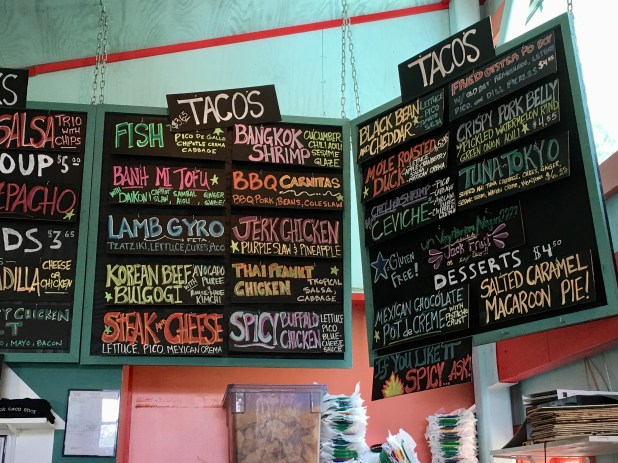 SALSA TRIO
WITH
CHIPS
SOUP $5.00
PACHO
DS 3.65
DILLA CHEESE
OR
CHICKEN
CHICKEN
MAYO, BACON
TACOS
FISH
PICO DE GALLO
CHIPOTLE CREMA
CABBAGE
BANH MI TOFU
DAIKON
GINGER
LAMB GYRO
FETA
TZATZIKI, LETTUCE, CUKES, PICO
KOREAN BEEF
BULGOGI
AVOCADO
PUREE
HOUSE MADE
KIMCHI
STEAK N' CHEESE
LETTUCE, PICO, MEXICAN CREMA
BANGKOK
SHRIMP
CUCUMBER
CHILI AOILI
SESAME
GLAZE
BBQ CARNITAS
BBQ PORK, BEANS, COLESLAW
JERK CHICKEN
PURPLE SLAW & PINEAPPLE
THAI PEANUT
CHICKEN
TROPICAL
SALSA,
CABBAGE
SPICY BUFFALO
CHICKEN
LETTUCE
PICO
BLUE-
CHEESE
SAUCE
TACOS
BLACK BEAN
N CHEDDAR
LETTUCE
PICO
MOLE ROASTED
DUCK
CHILLED SHRIMP
CEVICHE
GLUTEN
FREE!
MEXICAN CHOCOLATE
POT de CREME
WITH
PRETZEL
CRUST
IF YOU LIKE IT
SPICY...ASK!
FRIED OYSTER PO BOY
PICO AND DILL PICKLES $4.50
CRISPY PORK BELLY
W/ PICKLED WATERMELON RIND
GREEN ONION AOILI $4.95
TUNA TOKYO
Jack Fruit
DESSERTS $4.50
SALTED CARAMEL
MACAROON PIE!